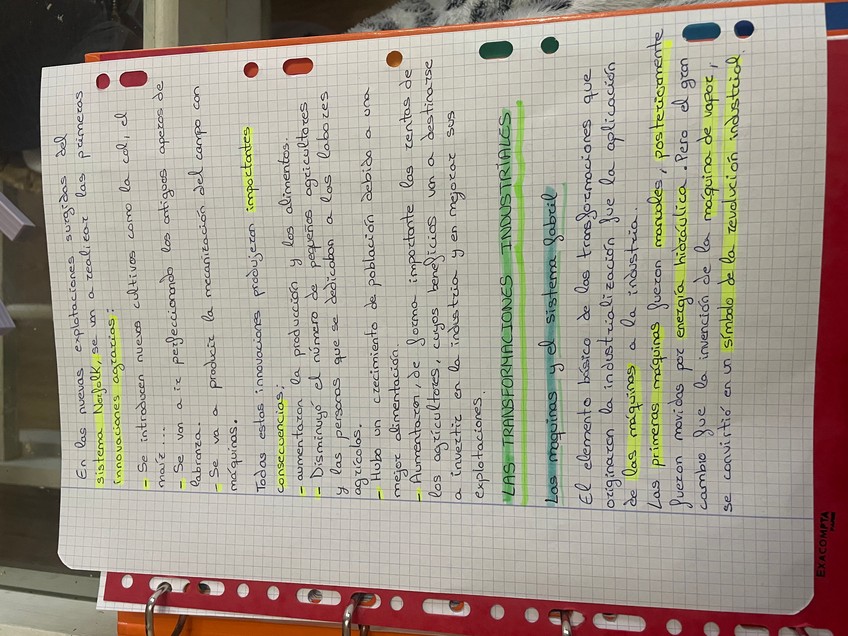 En las nuevas explotaciones surgidas del
sistema Norfolk, se van a realizar las primeras
innovaciones agrarias:
- Se introducen nuevos cultivos como la col, el
maíz ...
- Se van a ir perfeccionando los antiguos aperos de
labranza.
- Se va a producir la mecanización del campo con
máquinas.
Todas estas innovaciones produjeron importantes
consecuencias:
- aumentaron la producción y los alimentos.
- Disminuyó el número de pequeños agricultores
y las personas que se dedicaban a las labores
agrícolas.
- Hubo un crecimiento de población debido a una
mejor alimentación.
- Aumentaron, de forma importante las rentas de
los agricultores, cuyos beneficios van a destinarse
a invertir en la industria y en mejorar sus
explotaciones.
LAS TRANSFORMACIONES INDUSTRIALES
Las máquinas y el sistema fabril
El elemento básico de las transformaciones que
originaron la industrialización fue la aplicación
de las máquinas a la industria.
Las primeras máquinas fueron manuales, posteriormente
fueron movidas por energía hidráulica. Pero el gran
cambio fue la invención de la máquina de vapor,
se convirtió en un símbolo de la revolución industrial.
EXACOMPTA